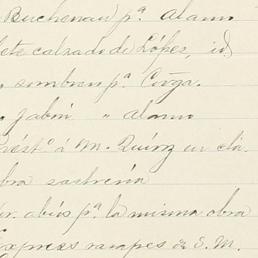 Buchenau pª. Alamo
lete calzado de López, id
" sombran pª. Cuga.
" jabón " Alamo
Prést.º á M. Quirz en cta.
bra sastrería
or. abíos pª. la misma obra
Express rarapes de S. M.